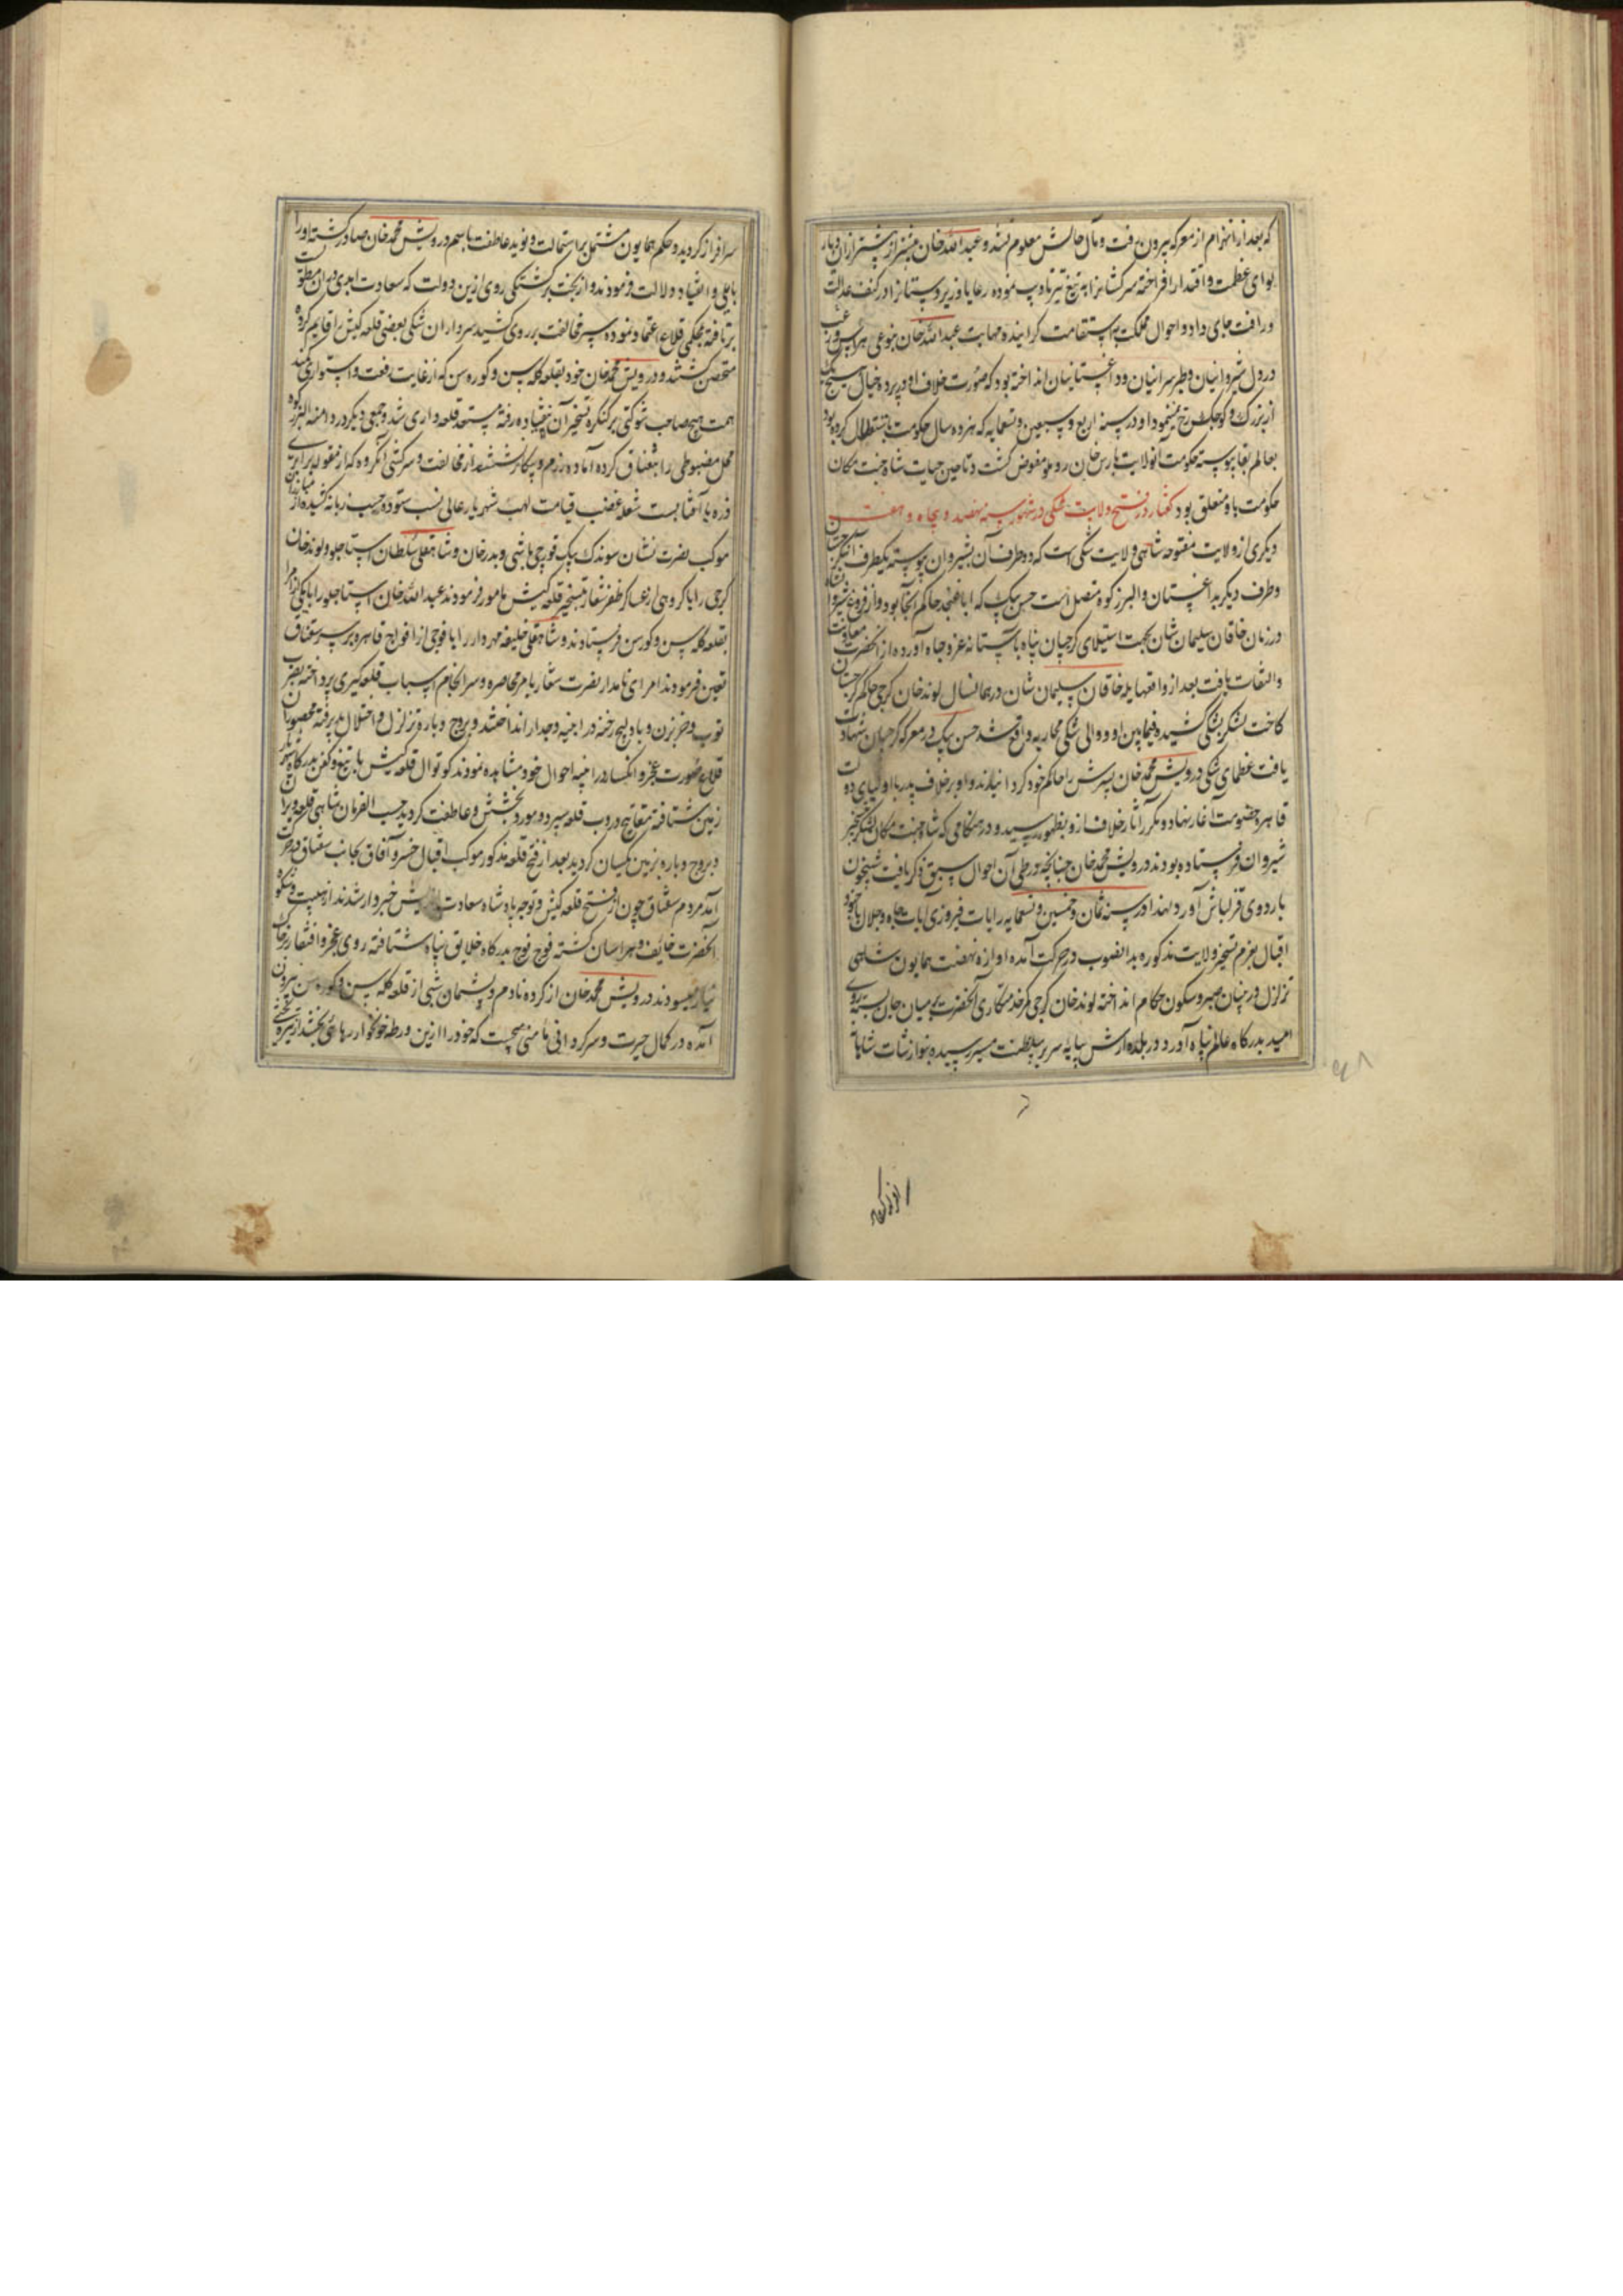 که بعد از انهزام از معرکه بیرون رفت و مآل حالش معلوم نشد و عبدالله خان بیشتر از پیشتر از ان دیار
لوای عظمت و اقتدار افراخته سرکشانرا به تیغ تیز تادیب نموده رعایا و زیردستانرا در کنف عدالت
و رافت جای داد و احوال مملکت به استقامت کرایید و مهابت عبدالله خان بنوعی هراس و رعب
در دل شیروانیان و طبرسرانیان و داغستانیان انداخته بود که صورت خلاف او در پرده خیال هیچیک
از بزرک و کوچک نمینمود او در سنه اربع و سبعین و تسعمایه که هژده سال حکومت باستقلال کرده بود
بعالم بقا پیوسته حکومت آنولایت بارس خان روملو مفوض کشت و تا حین حیات شاه جنت مکان
حکومت باو متعلق بود کفتار در فتح ولایت شکی در شهور سنه نهصد و پنجاه و هشت
دیکری از ولایت مفتوحه شاهی ولایت شکی است که دو طرف آن بشیروان پیوسته یکطرف آن کرجستان
و طرف دیکر به داغستان و البرز کوه متصل است حسن بیک که ابا عنجد حاکم آنجا بود و از
در زمان خاقان سلیمان شان بجهت استیلای کرجیان پناه باستانه عز و جاه آورده از آنحضرت معاونت
و التفات یافت بعد از واقعه هایله خاقان سلیمان شان در همانسال لوند خان کرجی حاکم کرجستان
کاخت لشکر بشکی کشیده فیمابین او و والی شکی محاربه واقع شد حسن بیک در معرکه کرجیان شهادت
یافت عظمای شکی درویش محمد خان پسرش را حاکم خود کردانیدند و او بر خلاف پدر با اولیای دولت
قاهره خصومت آغاز نهاد و مکرر آثار خلاف ازو بظهور رسید و در هنکامی که شاه جنت مکان لشکر بتسخیر
شیروان فرستاده بودند درویش محمد خان چنانچه در طی آن احوال سبق ذکر یافت شبیخون
باردوی قزلباش آورد لهذا در سنه ثمان و خمسین و تسعمایه رایات فیروزی ایات بجاه و جلال با جنود
اقبال بعزم تسخیر ولایت مذکوره بدانصوب در حرکت آمده اوازه نهضت همایون شاهی
تزلزل در بنیان صبر و سکون حکام انداخته لوند خان کرجی کمر خدمتکاری آنحضرت بر میان جان بسته روی
امید بدرکاه عالم پناه آورد و در بلده ارش بپایه سریر سلطنت مسیر رسیده بنوازشات شاهانه
سرافراز کردید و حکم همایون مشتمل بر استمالت و نوید عاطفت باسم درویش محمد خان صادر کشته او را
بایلی و انقیاد دلالت فرمودند و از بخت برکشتکی روی ازین دولت که سعادت ابدی در ان منطوی
برتافته بمحکمی قلاع اعتماد نموده سپر مخالفت بر روی کشید سرداران شکی بعضی قلعه کیش را قایم کرده
متحصن کشتند و درویش محمد خان خود بقلعه کله سن و کوره سن که از غایت رفعت و استواری کمند
همت هیچ صاحب شوکتی بر کنکره تسخیر آن نیفتاده رفته مستعد قلعه داری شد و جمعی دیکر در دامنه البرز کوه
محل مضبوطی را سقناق کرده آماده رزم و پیکار کشتند از مخالفت و سرکشی آنکروه که از مقوله برابری
ذره با آفتابست شعله غضب قیامت لهب شهریار عالی نسب ستوده حسب زبانه کشیده از
موکب نصرت نشان سوندک بیک قورچی باشی و بدر خان و شاهقلی سلطان استاجلو و لوند خان
کرجی را با کروهی از عساکر ظفر شعار بتسخیر قلعه کیش مامور فرمودند عبدالله خان استاجلو را با یکی از امرا
بقلعه کله سن و کورسن فرستادند و شاهقلی خلیفه مهردار را با فوجی از افواج قاهره بر سر سقناق
تعین فرمودند امرای نامدار نصرت شعار بامر محاصره و سرانجام اسباب قلعه کیری پرداخته بضرب
توپ و ضربزن و بادلیج رخنه در ابنیه و جدار انداختند و بروج و باره تزلزل و اختلال پذیرفته محصوران
قلاع صورت عجز و انکسار در ایینه احوال خود مشاهده نمودند کوتوال قلعه کیش با تیغ و کفن بدرکاه
زمین شتافته مفاتیح دروب قلعه سپرد و مورد بخشش و عاطفت کردید حسب الفرمان شاهی قلعه ویران
و بروج و باره بزمین یکسان کردید بعد از فتح قلعه مذکور موکب اقبال خسرو آفاق بجانب سقناق در حرکت
آمد مردم سقناق چون از فتح قلعه کیش و توجه پادشاه سعادت اندیش خبردار شدند از هیبت و شکوه
آنحضرت خایف و هراسان کشته فوج فوج بدرکاه خلایق پناه شتافته روی عجز و افتقار بر خاک
نیاز میسودند درویش محمد خان از کرده نادم و پشیمان شبی از قلعه کله سن و کوره سن بیرون
آمده در کمال حیرت و سرکردانی مامنی میجست که خود را ازین ورطه خونخوار رهائی بخشد از تیره بختی